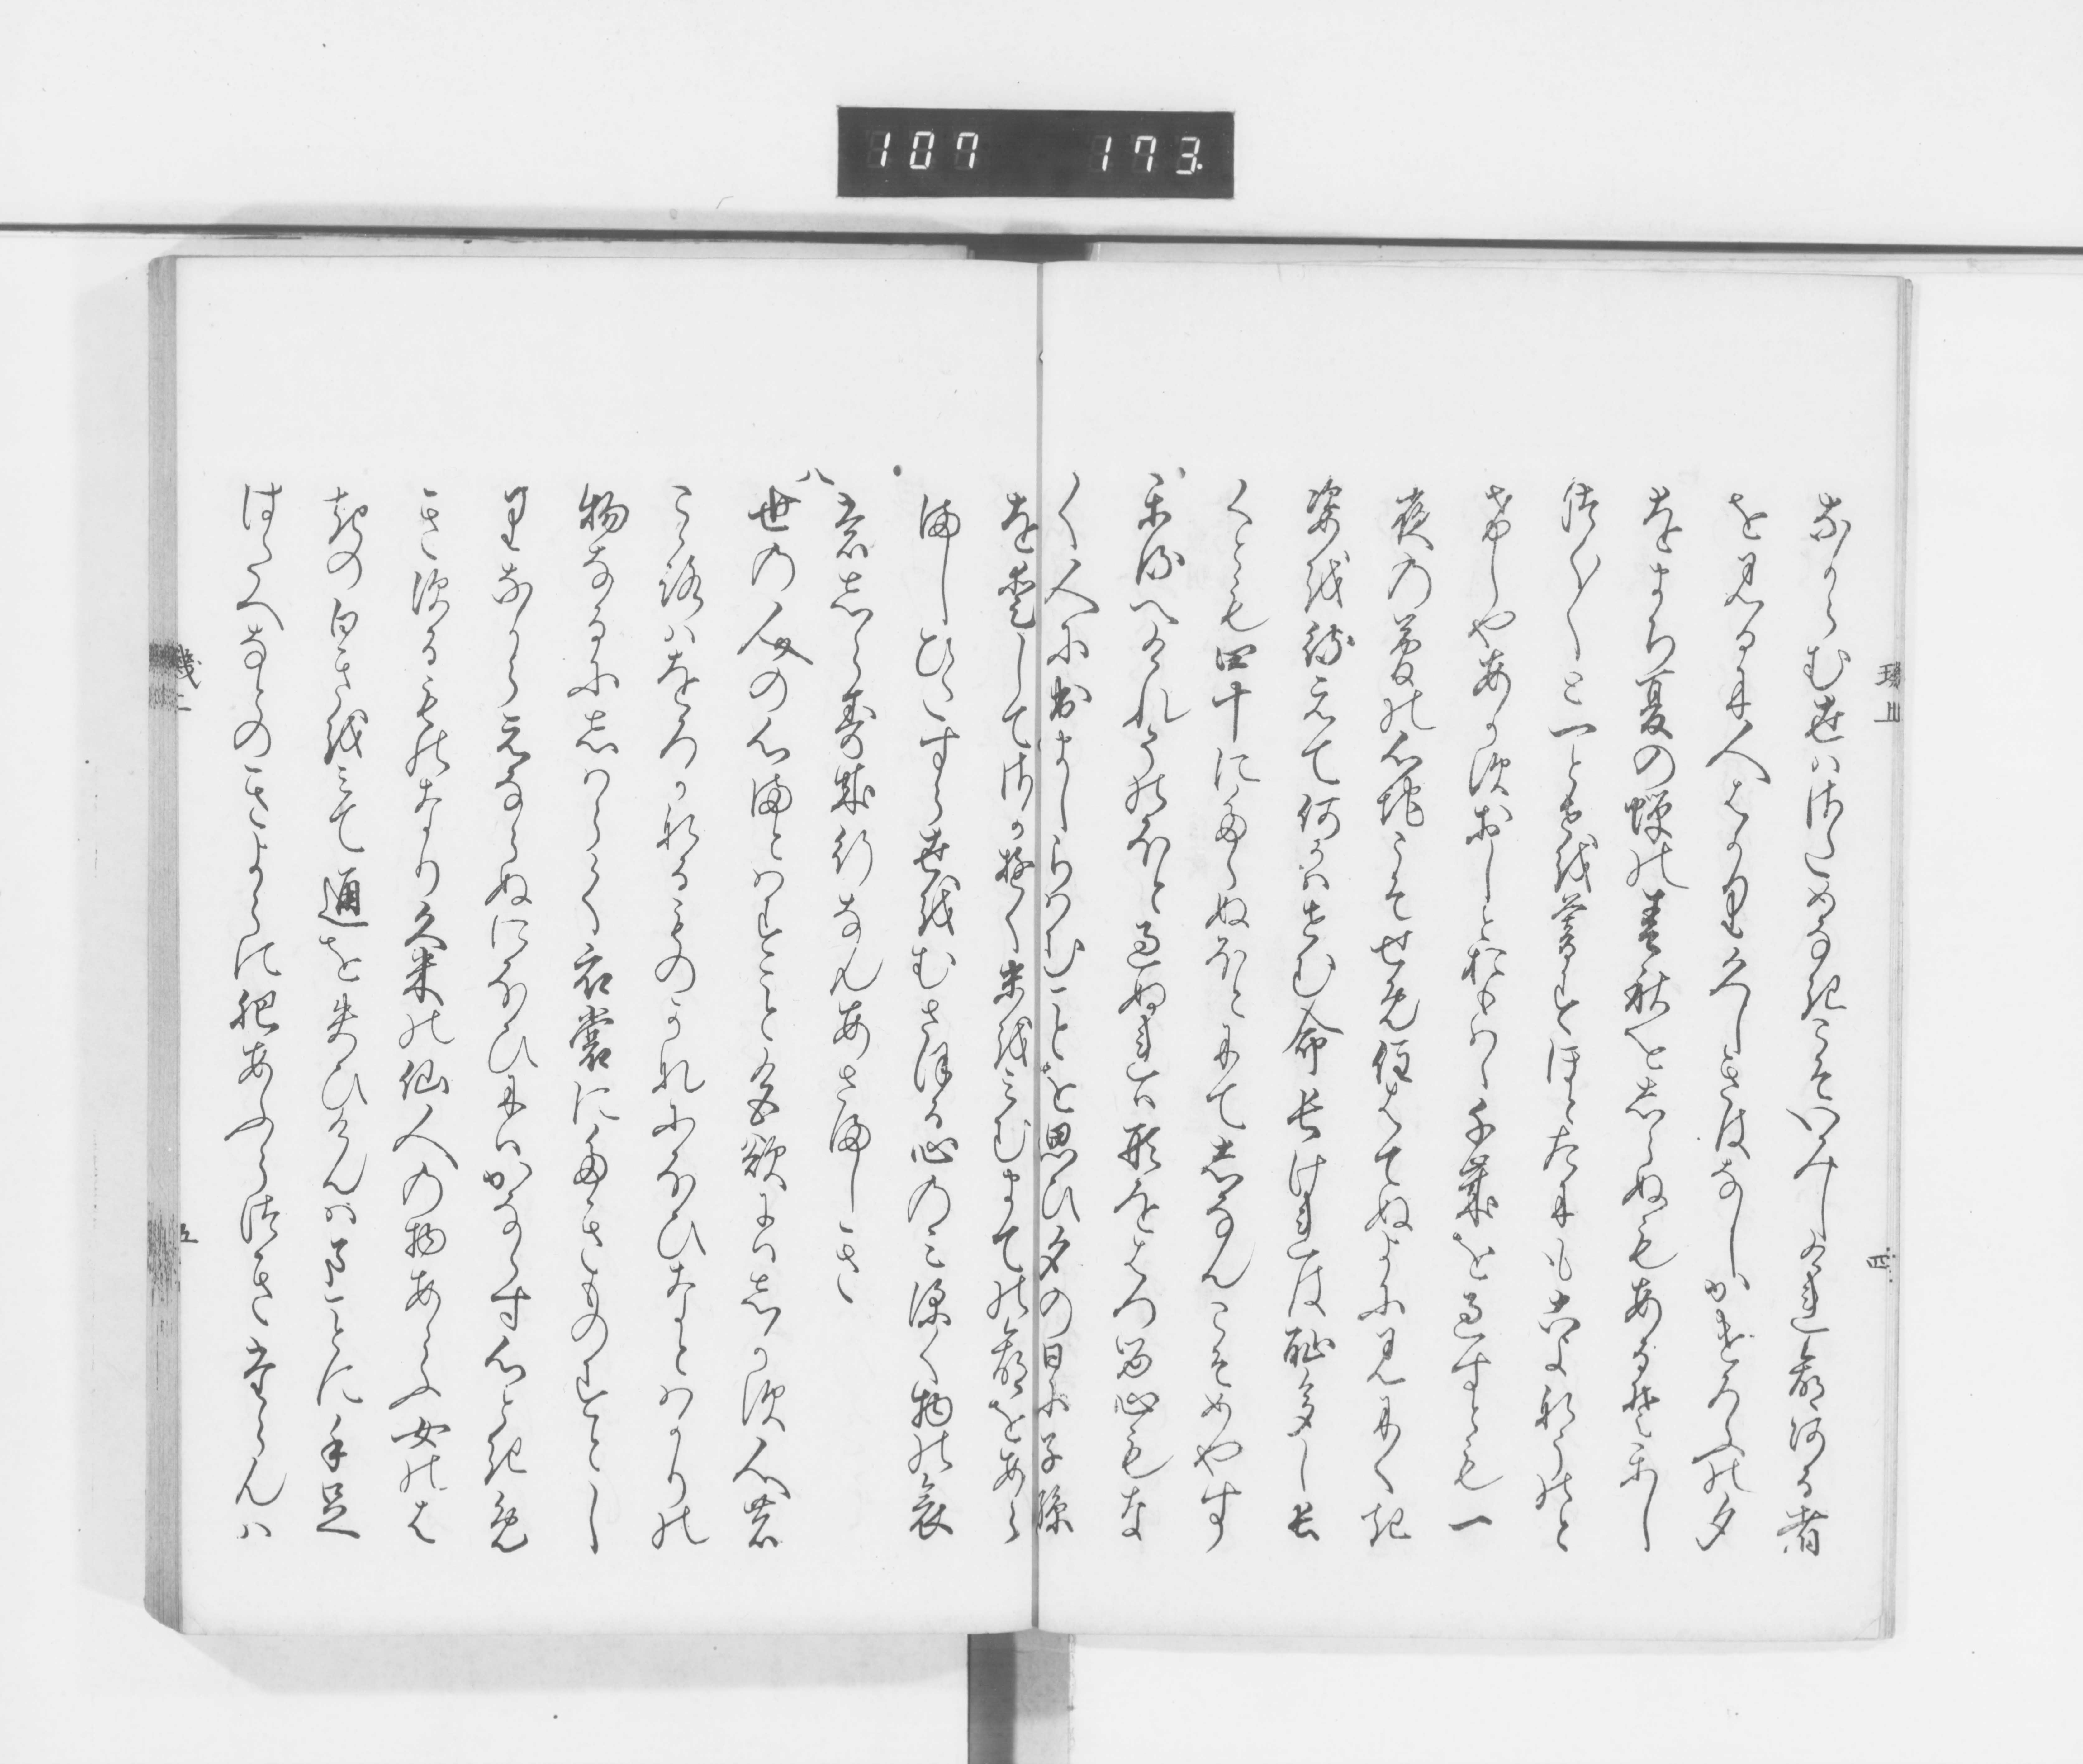 107 173
ながらむ世はさためなきこそいみしけれ命ある者
を見るに人はかり久しきはなしかけろふの夕
をまち夏の蝉の春秋をしらぬもあるそかし
つく〳〵と一とせを暮すほとたにもこよなうのと
けしやあかすおしとおもはゝ千年を過すとも一
夜の夢の心地こそせめ住はてぬよに見にくき
姿を待えて何かはせむ命長けれは恥多し長
くとも四十にたらぬほとにてしなんこそめやす
かるへけれそのほと過ぬれは形をはつる心もな
く人に出ましらはむことを思ひ夕の日に子孫
を愛してさかゆく末をみむまての命をあら
ましひたすら世をむさほる心のみ深く物の哀
もしらす成行なんあさましき
八
世の人の心まとはすこと色欲にはしかす人の
こゝろはをろかなるものかなにほひなとはかりの
物なるにしはらく衣裳にたきものすとし
りなからえならぬにほひにはかならす心ときめ
きするものなり久米の仙人の物あらふ女のは
きの白きをみて通を失ひけんはまことに手足
はたへなとのきよらに肥あふらつきたらんは